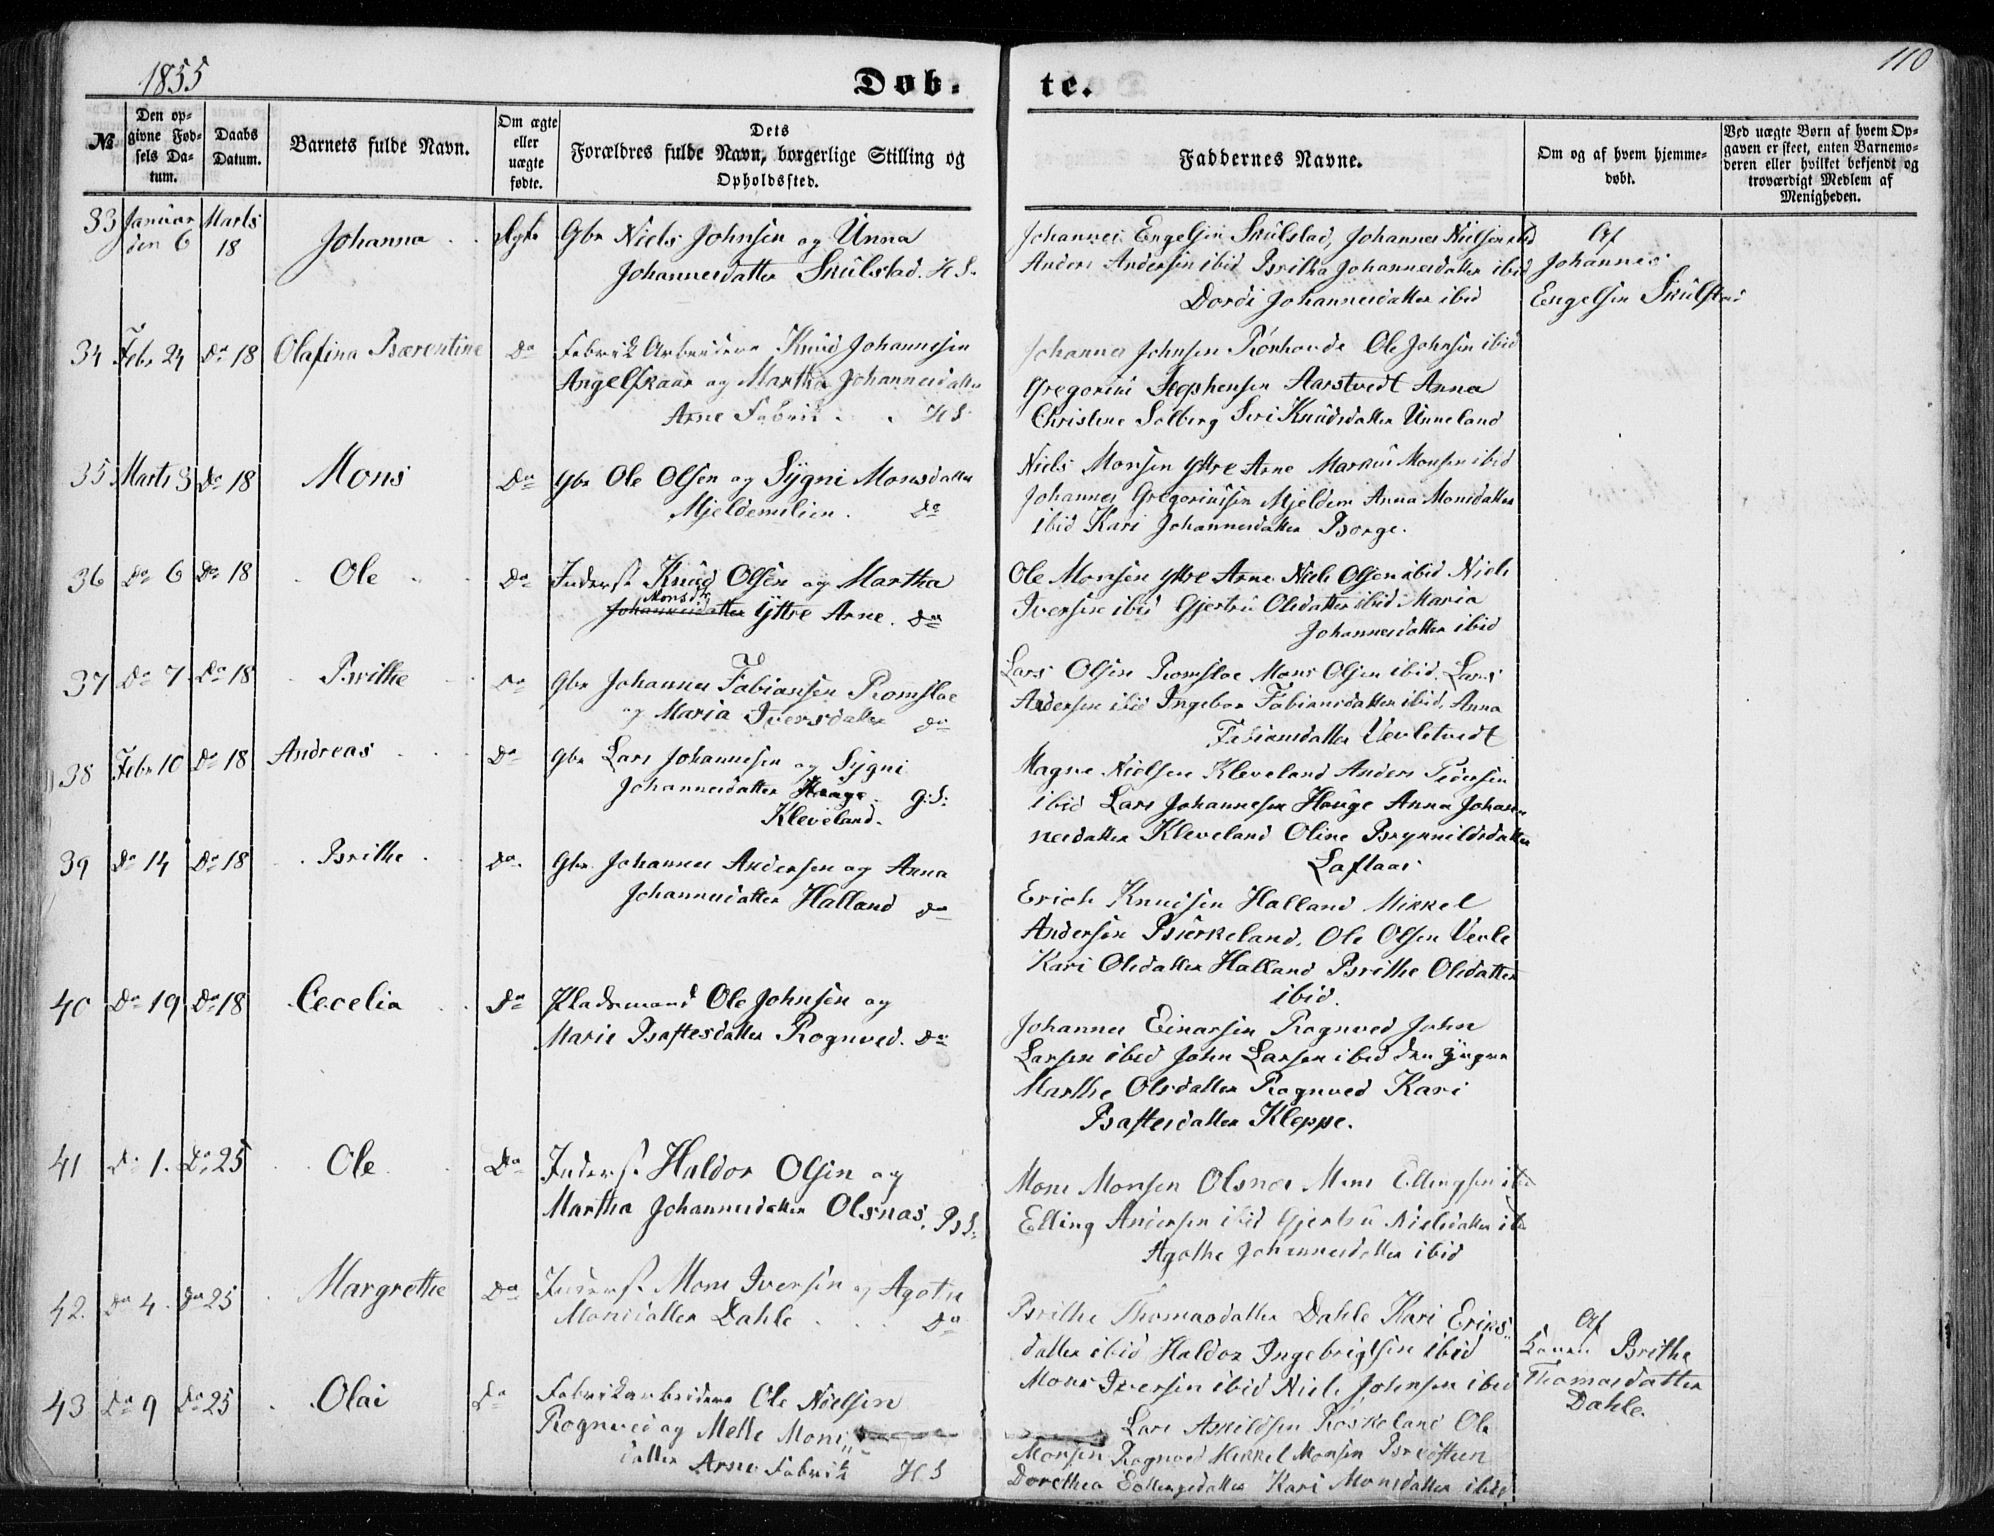 1855
110
Døb-
te.
№
Den op-
givne Fød-
sels Da-
tum.
Daabs
Datum.
Barnets fulde Navn.
Om ægte
eller
uægte
fødte.
Dets
Forældres fulde Navn, borgerlige Stilling og
Opholdssted.
Faddernes Navne.
Om og af hvem hjemme-
døbt.
Ved uægte Børn af hvem Op-
gaven er skeet, enten Barnemo-
deren eller hvilket bekjendt og
troværdigt Medlem af
Menigheden.
33 Januar Marts Johanna Ægte Gbr Niels Johnsen og Unna
den 6 18 Johannesdatter Skulstad. H.S.
Johannes Engelsen Skulstad, Johannes Nielsen ibid
Anders Andersen ibid Britha Johannesdatter ibid
Dordi Johannesdatter ibid
Af
Johannes
Engelsen Skulstad
34 Febr 24 Do 18 Olafina Bærentine Do Fabrik Arbeider Knud Johannesen
Angelskaar og Martha Johannesdatter
Arne Fabrik H S
Johannes Johnsen Rønhovde Ole Johnsen ibid
Gregorius Stephensen Aarstvedt Anna
Christine Solberg Siri Knudsdatter Unneland
35 Marts 3 Do 18 Mons Do Gbr Ole Olsen og Sygni Monsdatter
Mjeldemilien. Do
Niels Monsen Yttre Arne Markus Monsen ibid
Johannes Gregoriussen Mjeldem Anna Monsdatter
ibid Kari Johannesdatter Borge.
36 Do 6 Do 18 Ole Do Inderst Knud Olsen og Martha
Monsdtr
Johannesdatter Yttre Arne. Do
Ole Monsen Yttre Arne Niels Olsen ibid Niels
Iversen ibid Gjertru Olsdatter ibid Maria
Johannesdatter ibid
37 Do 7 Do 18 Brithe Do Gbr Johannes Fabiansen Romsloe
og Maria Iversdatter Do
Lars Olsen Romsloe Mons Olsen ibid. Lars
Andersen ibid Ingebor Fabiansdatter ibid. Anna
Fabiansdatter Vevletvedt
38 Febr 10 Do 18 Andreas Do Gbr Lars Johannesen og Sygni
Johannesdatter Houge G:S:
Kleveland.
Magne Nielsen Kleveland Anders Pedersen
ibid Lars Johannesen Houge Anna Johan-
nesdatter Kleveland Oline Brynnildsdatter
Loftaas
39 Do 14 Do 18 Brithe Do. Gbr. Johannes Andersen og Anna
Johannesdatter Halland Do
Erich Knudsen Halland Mikkel
Andersen Bierkeland. Ole Olsen Vevle
Kari Olsdatter Halland Brithe Olsdatter
ibid.
40 Do 19 Do 18 Cecelia Do Pladsmand Ole Johnsen og
Marie Baftesdatter Rognved. Do
Johannes Einarsen Rognved John
Larsen ibid John Larsen ibid den yngre
Marthe Olsdatter Rognved Kari
Baftesdatter Kleppe.
41 Do 1. Do 25 Ole Do Inderst Haldor Olsen og
Martha Johannesdatter Olsnas. B.S.
Mons Monsen Olsnes Mons Ellingsen ibid
Elling Andersen ibid Gjertru Nielsdatter ib
Agathe Johannesdatter ibid
42. Do 4. Do 25 Margrethe Do Inderst Mons Iversen og Agothe
Monsdatter Dahle Do
Brithe Thomasdatter Dahle Kari Eriks-
datter ibid Haldor Ingebrigtsen ibid
Mons Iversen ibid Niels Johnsen ibid
Af
Konen Brithe
Thomasdatter
Dahle.
43 Do 9 Do 25 Olai Do Fabrikarbeider Ole Nielsen
Rognved og Mette Mons-
datter Arne Fabrik H S
Lars Askildsen Røskeland Ole
Monsen Rognved Mikkel Monsen Bredsteen
Dorethea Kari Monsdatter ibid